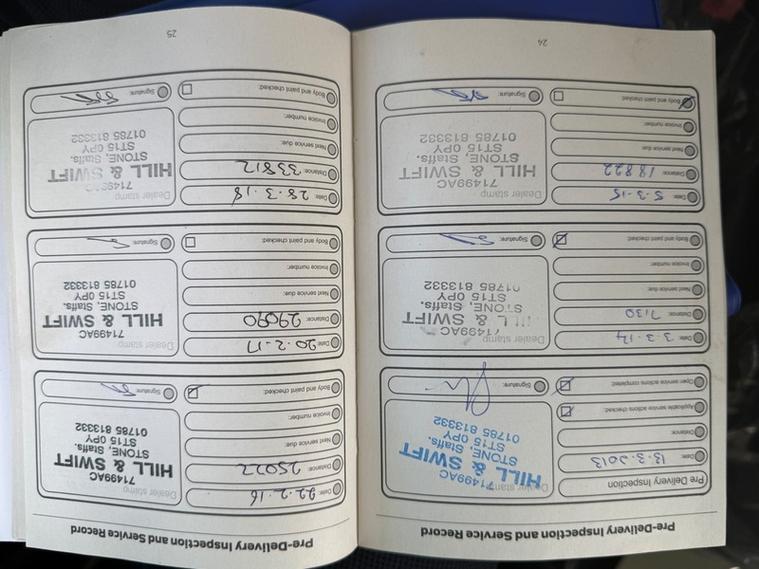 Pre-Delivery Inspection and Service Record
Pre Delivery Inspection
Date: 13-3-2013
Distance:
Applicable service actions checked:
Open service actions completed:
Dealer stamp
71499AC
HILL & SWIFT
STONE, Staffs.
ST15 0PY
01785 813332
Signature:
Date: 3-3-14
Distance: 7130
Next service due:
Invoice number:
Body and paint checked:
Dealer stamp
71499AC
HILL & SWIFT
STONE, Staffs.
ST15 0PY
01785 813332
Signature:
Date: 5-3-15
Distance: 18822
Next service due:
Invoice number:
Body and paint checked:
Dealer stamp
71499AC
HILL & SWIFT
STONE, Staffs.
ST15 0PY
01785 813332
Signature:
24
Pre-Delivery Inspection and Service Record
Date: 22-2-16
Distance: 25022
Next service due:
Invoice number:
Body and paint checked:
Dealer stamp
71499AC
HILL & SWIFT
STONE, Staffs.
ST15 0PY
01785 813332
Signature:
Date: 20-2-17
Distance: 29090
Next service due:
Invoice number:
Body and paint checked:
Dealer stamp
71499AC
HILL & SWIFT
STONE, Staffs.
ST15 0PY
01785 813332
Signature:
Date: 28-3-18
Distance: 33812
Next service due:
Invoice number:
Body and paint checked:
Dealer stamp
71499AC
HILL & SWIFT
STONE, Staffs.
ST15 0PY
01785 813332
Signature:
25